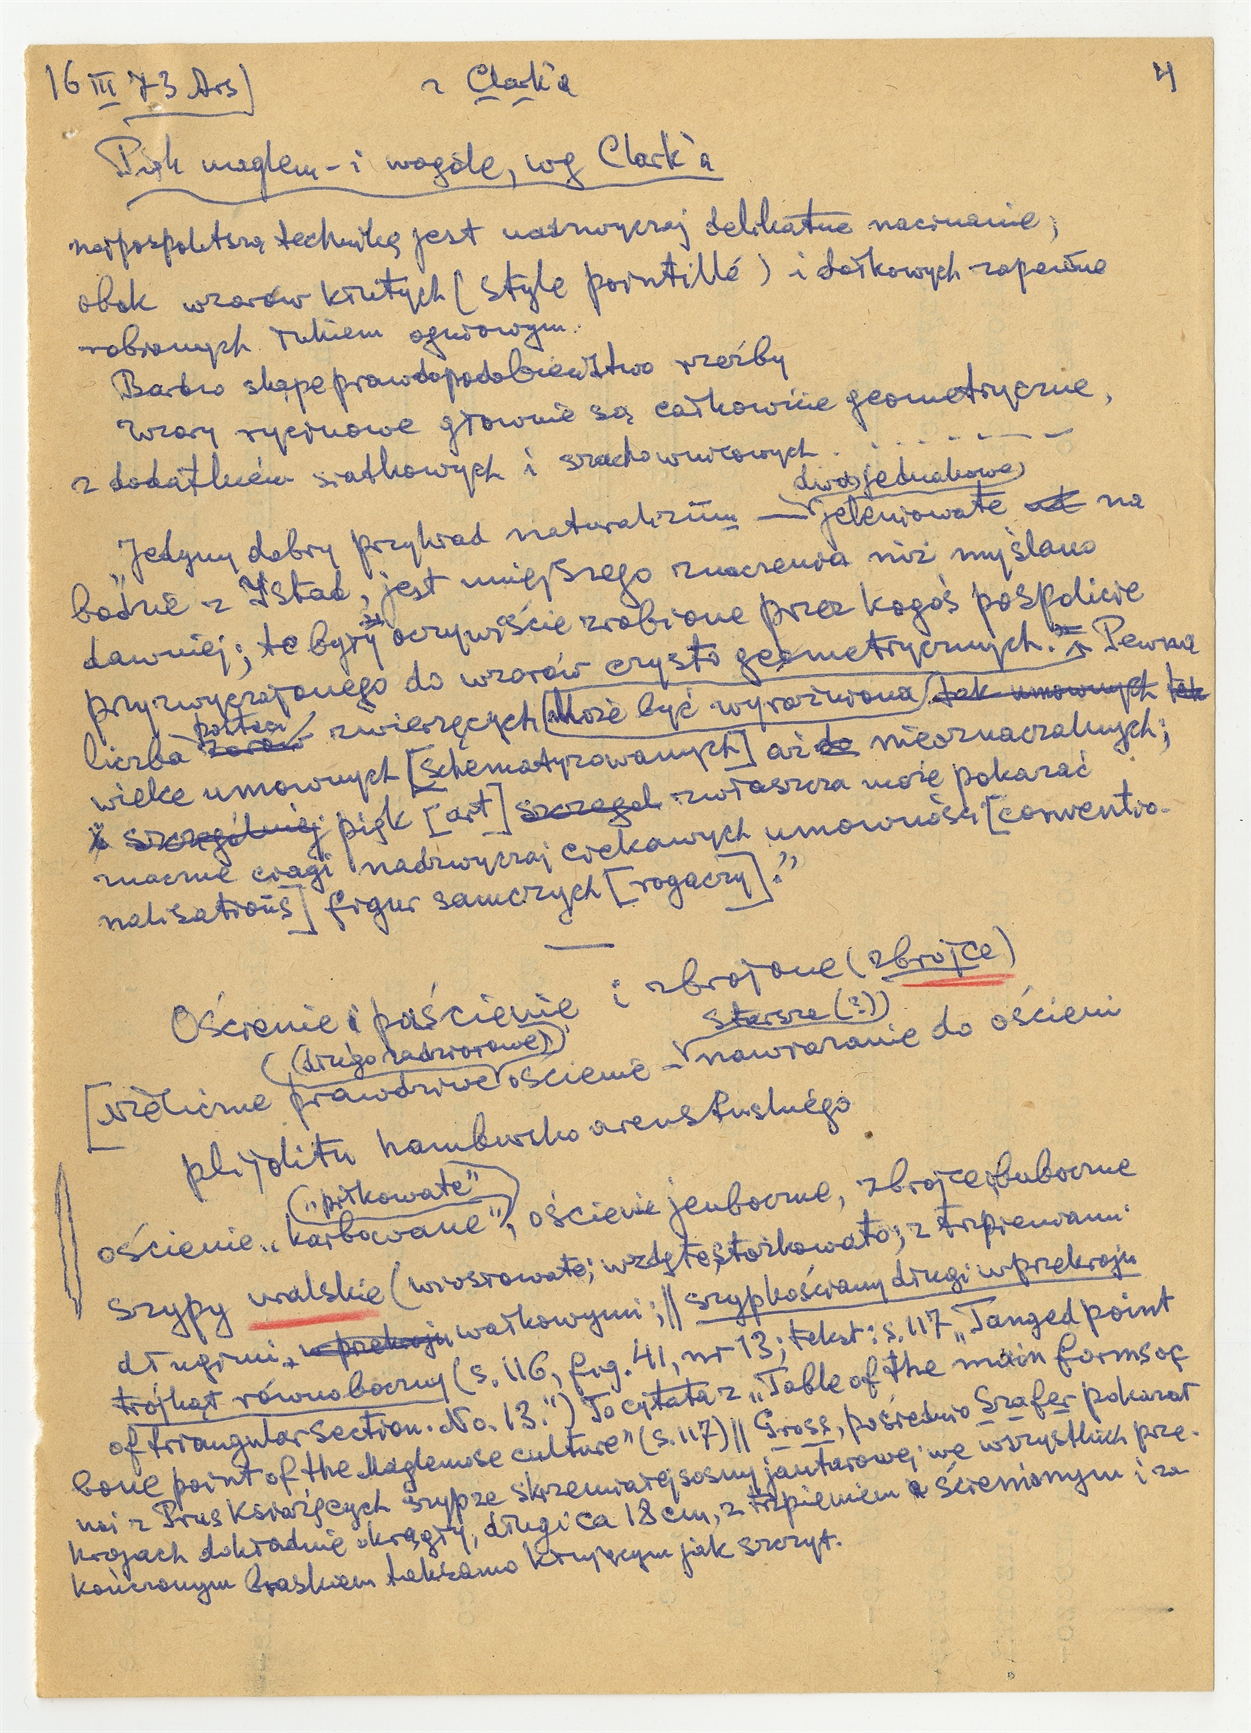 16 III 73 Ars)
z Clark'a
4
Pięk maglem - i wogóle, wg Clark'a
najpospolitszą techniką jest nadzwyczaj delikatne nacinanie,
obok wzorów kłutych (style pointillé) i dołkowych zapewne
robionych łukiem ogniowym.
Bardzo skąpe prawdopodobieństwo rzeźby
Wzory rycinowe głównie są całkowicie geometryczne,
z dodatkiem siatkowych i szachownicowych. . . . . — . — —
dwa jednakowe
"Jedyny dobry przykład naturalizmu — jeleniowate na
bodzie z Ystad, jest mniejszego znaczenia niż myślano
dawniej; te były oczywiście zrobione przez kogoś pospolicie
przyzwyczajonego do wzorów czysto geometrycznych." Pewna
liczba postaci zwierzęcych może być wyróżniona tak umownych tak
wielce umownych [schematyzowanych] aż do nieoznaczalnych;
i szczególniej pięk [art] szczegól zwłaszcza może pokazać
znaczne ciągi nadzwyczaj ciekawych umowności [conventio-
nalisations] figur samczych [rogaczy]."
Ościenie i paścienie i zbrojone (zbrojce)
((długozadziorowe)) starsze (?))
[Nieliczne prawdziwe ościenie - nawiązanie do ościeni
plijolitu hambursko arensburskiego
("piłkowate")
ościenie "karbowane", ościenie jenboczne, zbrojce buboczne
szypy uralskie (wiosłowate; wzdęto stożkowato; z trzpieniami
długimi, w przekroju wałkowymi; || szypkościany długi w przekroju
trójkąt równoboczny (s. 116, fig. 41, nr 13; tekst: s. 117 "Tanged point
of triangular section. No. 13.") To cytata z "Table of the main forms of
bone point of the Maglemose culture" (s. 117) || Gross, pośrednio Szafer pokazał
mi z Prus Książęcych szyp ze skrzemiałej sosny jantarowej we wszystkich prze-
krojach dokładnie okrągły, długi ca 18 cm, z trzpieniem ścienionym i za
kończonym łraskiem taksamo kłującym jak szczyt.